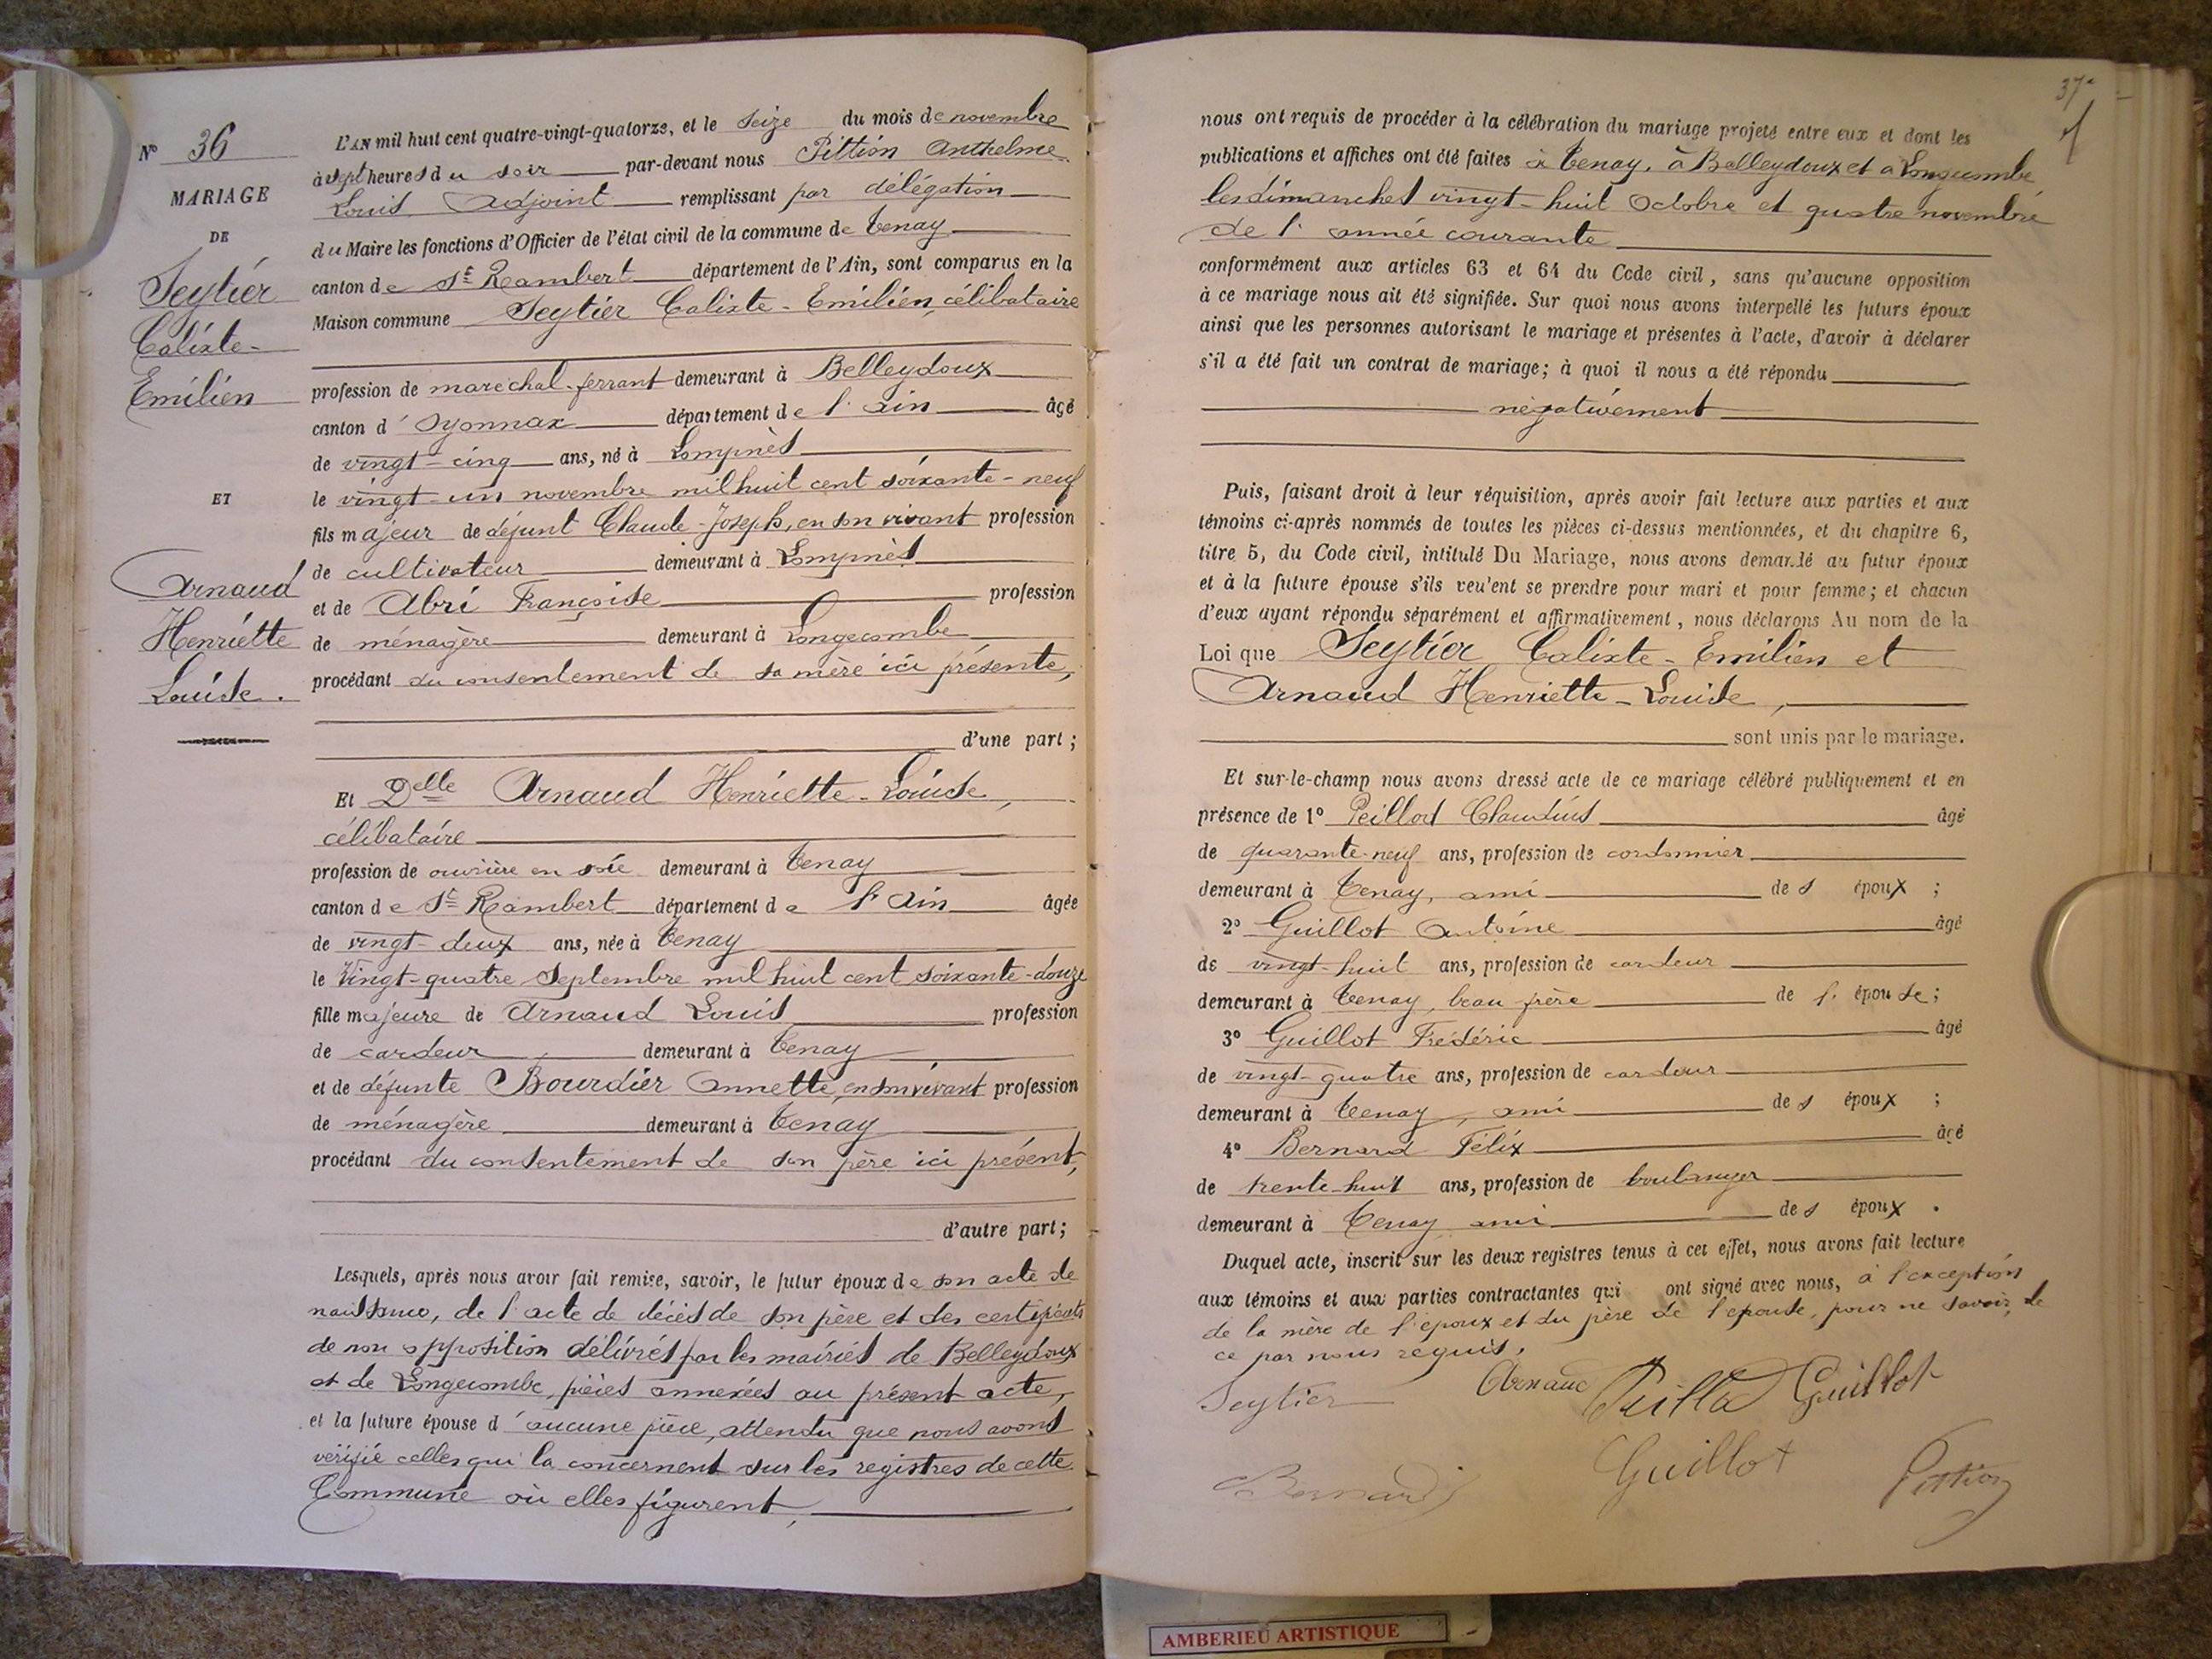 N° 36
MARIAGE
DE
Seytier
Calixte-
Emilien
ET
Arnaud
Henriette
Louise.
L'AN mil huit cent quatre-vingt-quatorze, et le seize du mois de novembre
à sept heures du soir par-devant nous Pittion Anthelme
Louis Adjoint remplissant par délégation
du Maire les fonctions d'Officier de l'état civil de la commune de Tenay
canton de St Rambert département de l'Ain, sont comparus en la
Maison commune Seytier Calixte-Emilien, célibataire
profession de maréchal-ferrant demeurant à Belleydoux
canton d'Oyonnax département de l'ain âgé
de vingt-cinq ans, né à Lompnès
le vingt-un novembre mil huit cent soixante-neuf
fils majeur de défunt Claude-Joseph, en son vivant profession
de cultivateur demeurant à Lompnès
et de Abri Françoise profession
de ménagère demeurant à Longecombe
procédant du consentement de sa mère ici présente,
d'une part;
Et Delle Arnaud Henriette-Louise,
célibataire
profession de ouvrière en soie demeurant à Tenay
canton de St Rambert département de l'Ain âgée
de vingt-deux ans, née à Tenay
le Vingt-quatre Septembre mil huit cent soixante-douze
fille majeure de Arnaud Louis profession
de cardeur demeurant à Tenay
et de défunte Bourdier Annette, en son vivant profession
de ménagère demeurant à Tenay
procédant du consentement de son père ici présent,
d'autre part;
Lesquels, après nous avoir fait remise, savoir, le futur époux de son acte de
naissance, de l'acte de décès de son père et des certificats
de non opposition délivrés par les mairies de Belleydoux
et de Longecombe, pièces annexées au présent acte,
et la future épouse d'aucune pièce, attendu que nous avons
vérifié celles qui la concernent sur les registres de cette
Commune où elles figurent,
37e
nous ont requis de procéder à la célébration du mariage projeté entre eux et dont les
publications et affiches ont été faites à Tenay, à Belleydoux et à Longecombe
les dimanches vingt-huit Octobre et quatre novembre
de l'année courante
conformément aux articles 63 et 64 du Code civil, sans qu'aucune opposition
à ce mariage nous ait été signifiée. Sur quoi nous avons interpellé les futurs époux
ainsi que les personnes autorisant le mariage et présentes à l'acte, d'avoir à déclarer
s'il a été fait un contrat de mariage; à quoi il nous a été répondu
négativement
Puis, faisant droit à leur réquisition, après avoir fait lecture aux parties et aux
témoins ci-après nommés de toutes les pièces ci-dessus mentionnées, et du chapitre 6,
titre 5, du Code civil, intitulé Du Mariage, nous avons demandé au futur époux
et à la future épouse s'ils veulent se prendre pour mari et pour femme; et chacun
d'eux ayant répondu séparément et affirmativement, nous déclarons Au nom de la
Loi que Seytier Calixte-Emilien et
Arnaud Henriette-Louise,
sont unis par le mariage.
Et sur-le-champ nous avons dressé acte de ce mariage célébré publiquement et en
présence de 1° Peillod Claudius âgé
de quarante-neuf ans, profession de cordonnier
demeurant à Tenay, ami des époux;
2° Guillot Antoine âgé
de vingt-huit ans, profession de cardeur
demeurant à Tenay, beau frère de l'épouse;
3° Guillot Frédéric âgé
de vingt-quatre ans, profession de cardeur
demeurant à Tenay, ami des époux;
4° Bernard Félix âgé
de trente-huit ans, profession de boulanger
demeurant à Tenay ami des époux.
Duquel acte, inscrit sur les deux registres tenus à cet effet, nous avons fait lecture
aux témoins et aux parties contractantes qui ont signé avec nous, à l'exception
de la mère de l'époux et du père de l'épouse, pour ne savoir, de
ce par nous requis.
Seytier Arnaud Guillot
Bernard Guillot Pittion
AMBERIEU ARTISTIQUE